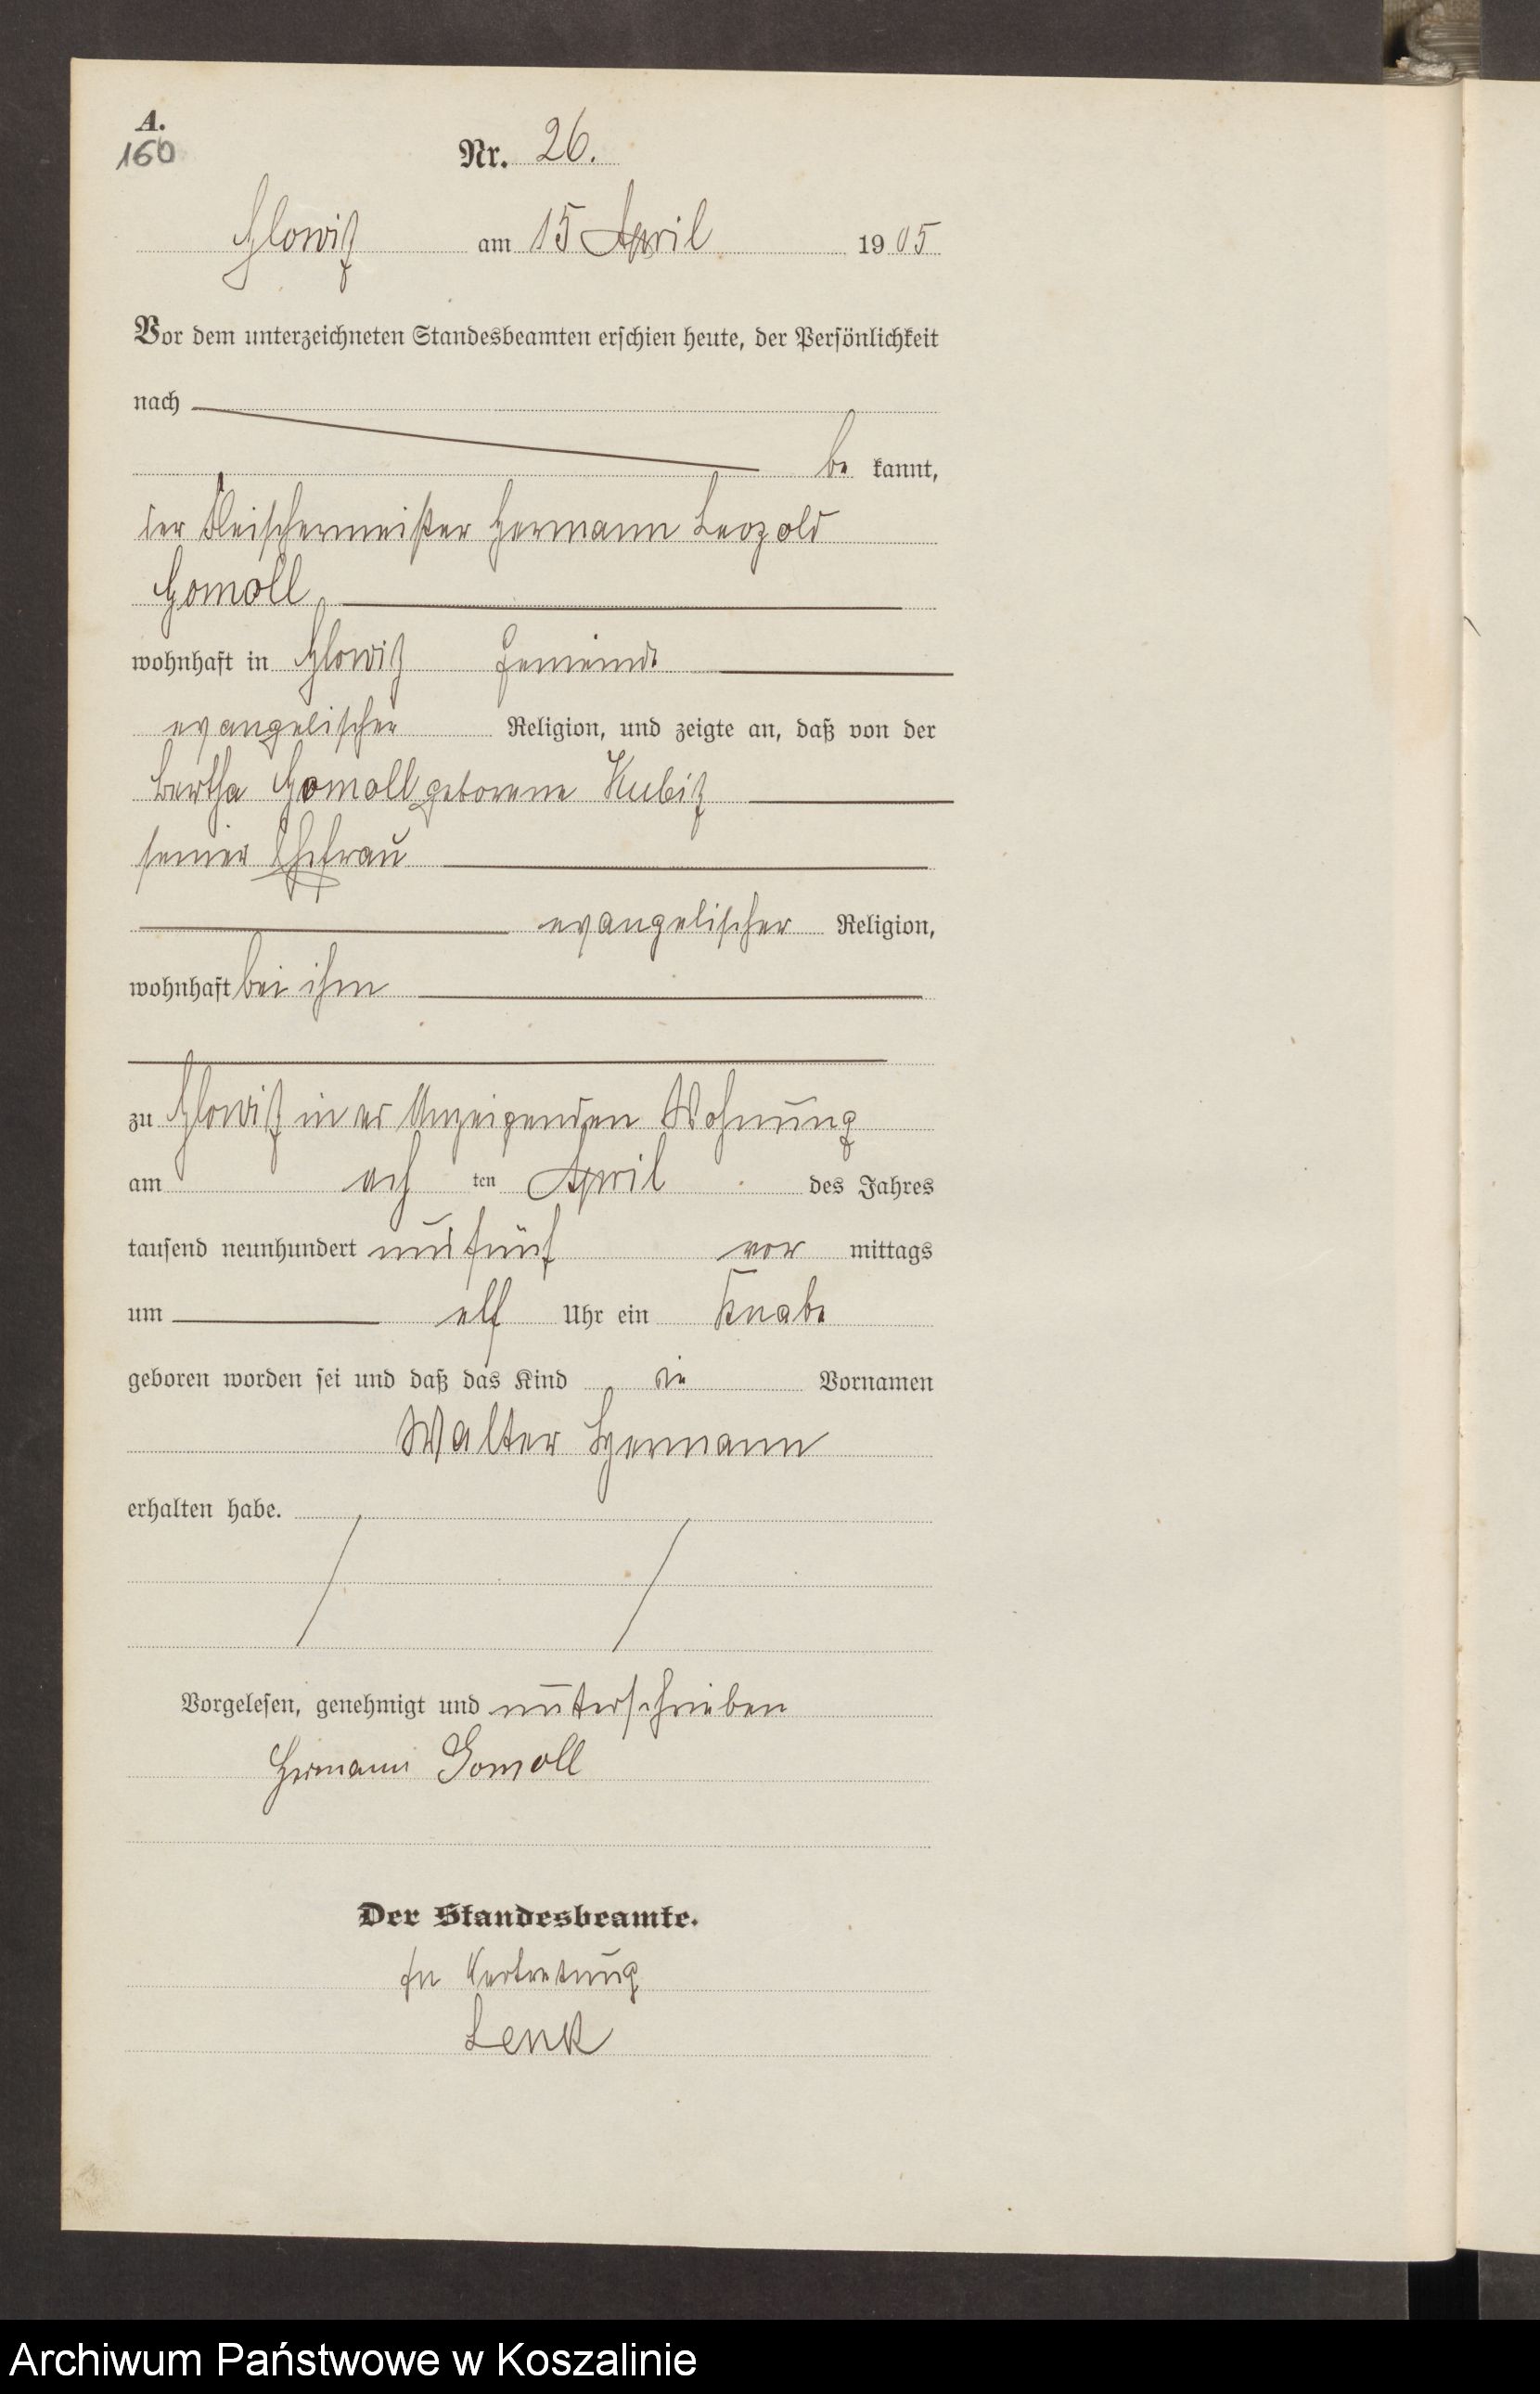 A.
160
Nr. 26.
Glowitz am 15 April 1905
Vor dem unterzeichneten Standesbeamten erschien heute, der Persönlichkeit
nach
be kannt,
der Fleischermeister Hermann Leopold
Gomoll
wohnhaft in Glowitz Gemeinde
evangelischer Religion, und zeigte an, daß von der
Bertha Gomoll geborene Kubitz
seiner Ehefrau
evangelischer Religion,
wohnhaft bei ihm
zu Glowitz in Anzeigenden Wohnung
am ach ten April des Jahres
tausend neunhundert und fünf vor mittags
um elf Uhr ein Knabe
geboren worden sei und daß das Kind die Vornamen
Walter Hermann
erhalten habe.
Vorgelesen, genehmigt und unterschrieben
Hermann Gomoll
Der Standesbeamte.
In Vertretung
Lenk
Archiwum Państwowe w Koszalinie